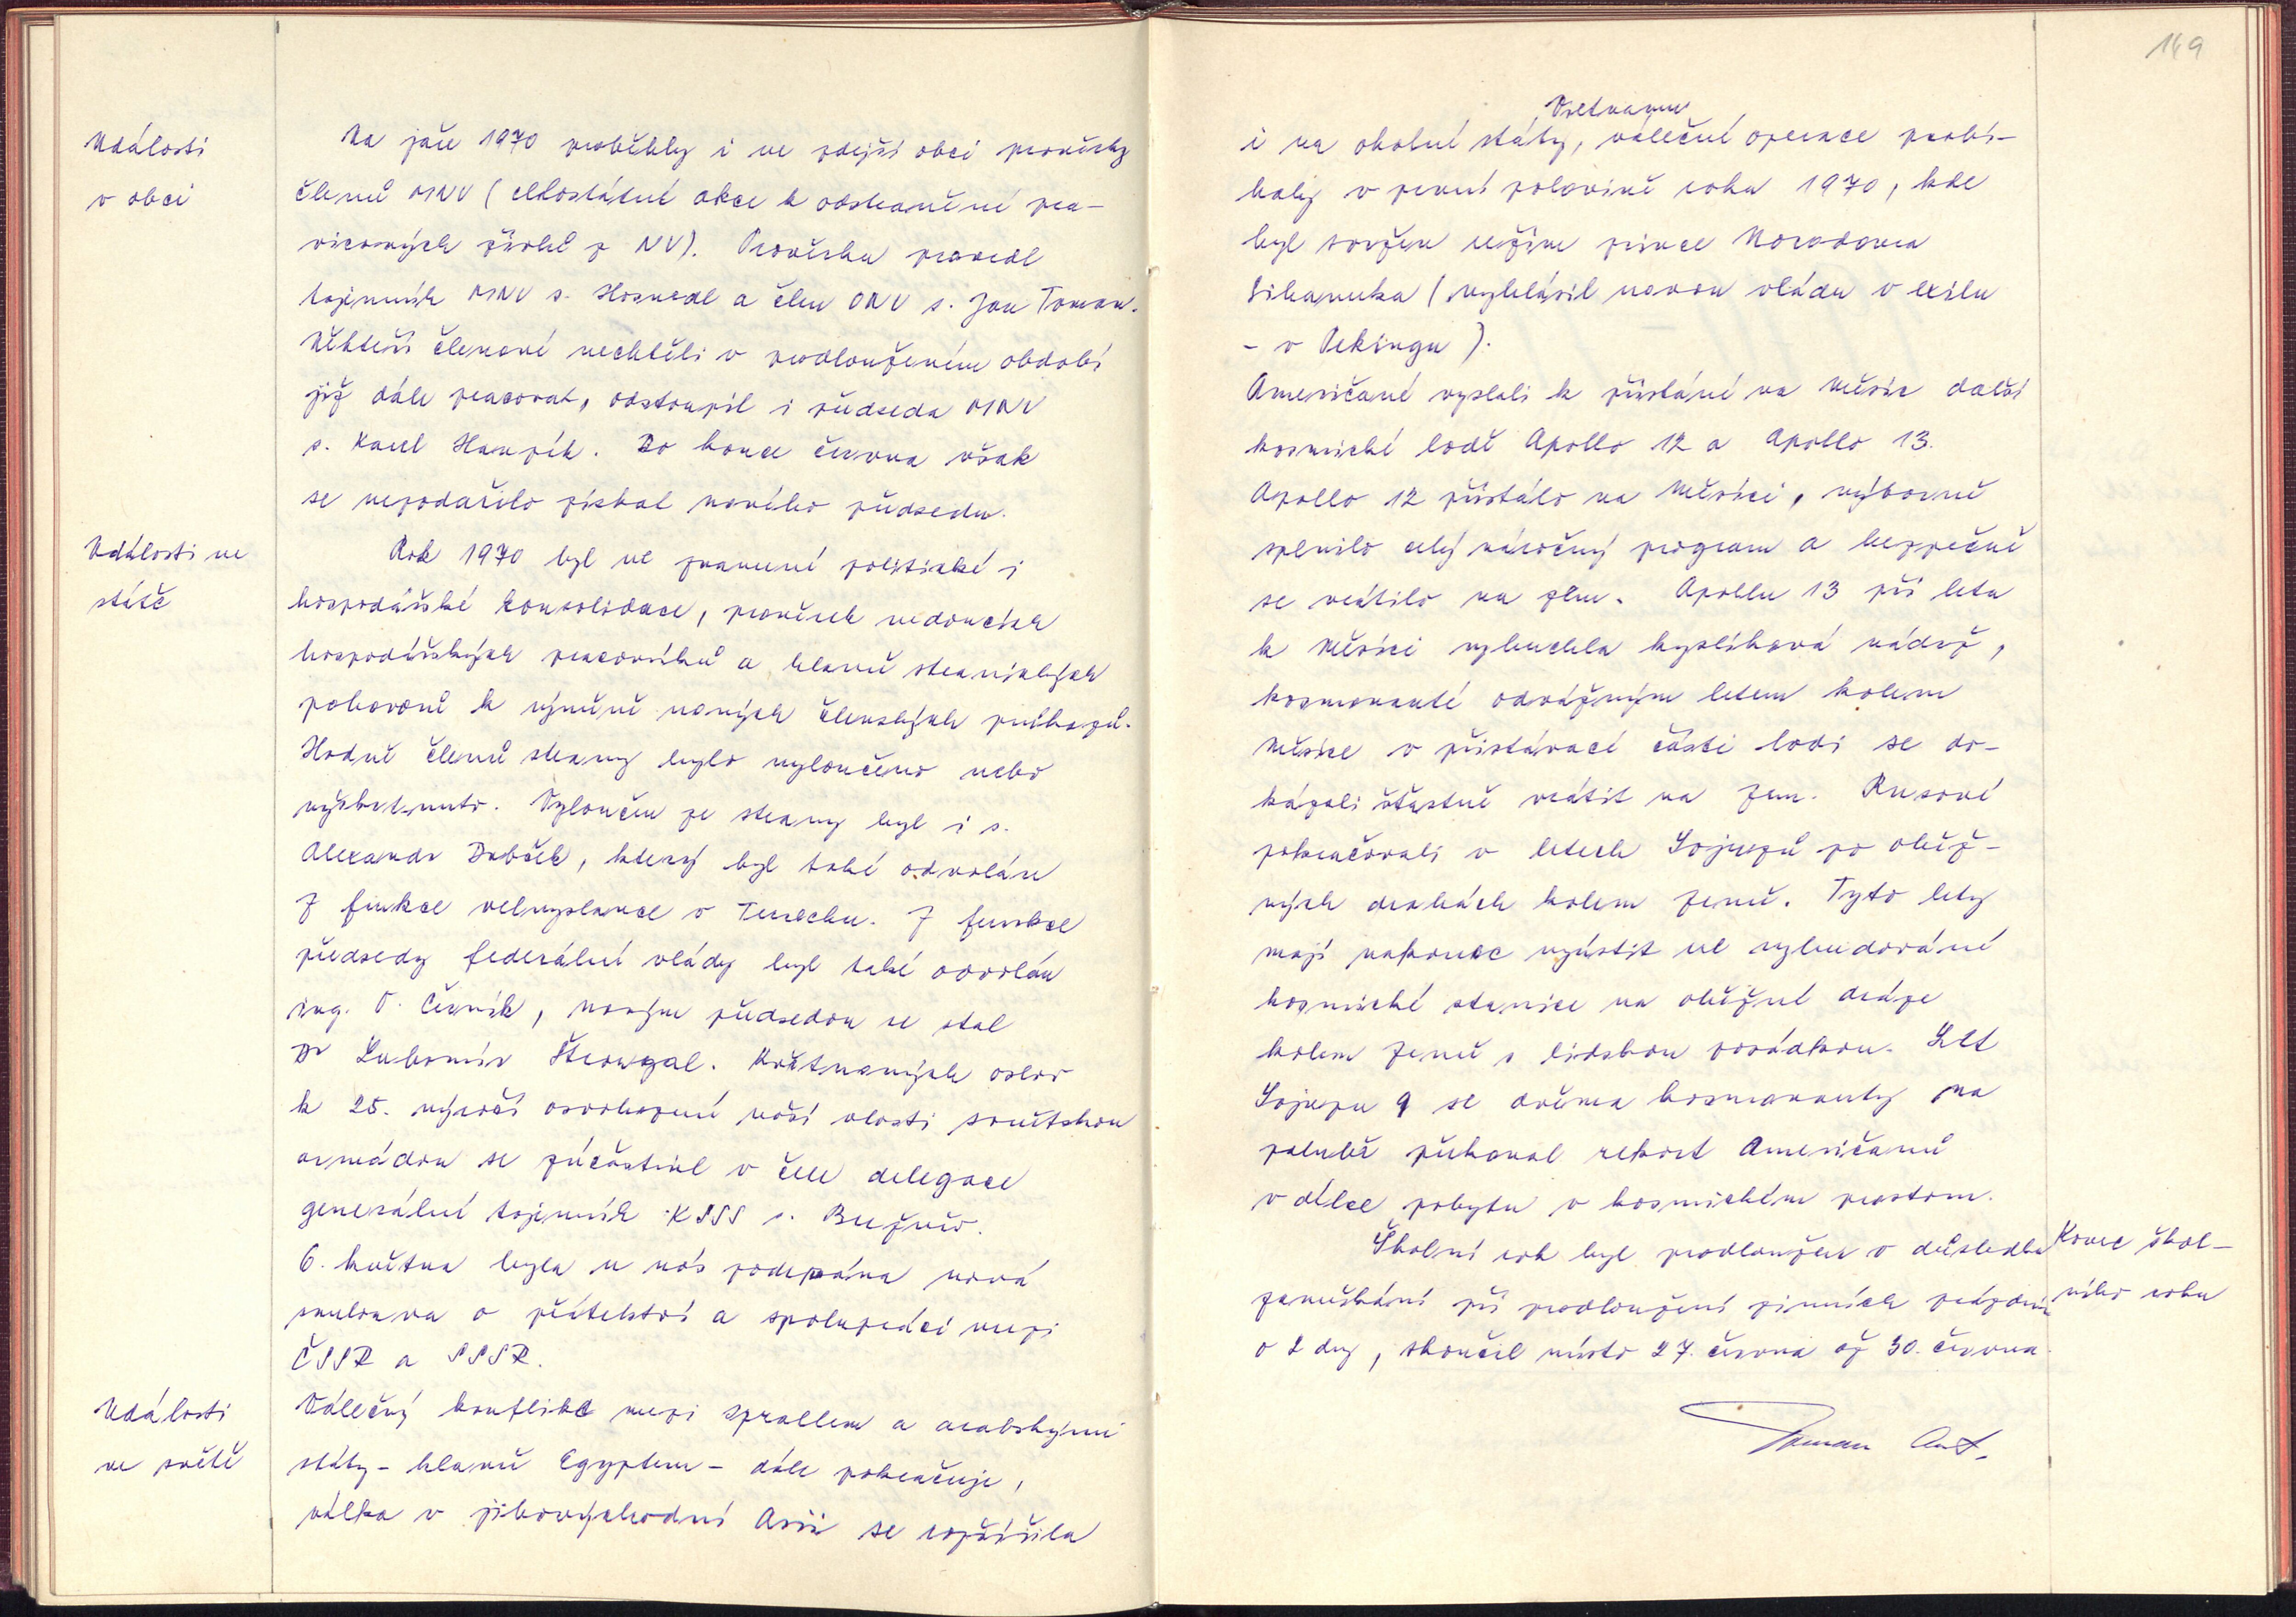 149
Události
v obci
Na jaře 1970 proběhly i ve zdejší obci prověrky
členů MNV (celostátní akce k odstranění pra-
vicových živlů z NV). Prověrku provedl
tajemník MNV s. Hosnedl a člen ONV s. Jan Toman.
Někteří členové nechtěli v prodlouženém období
již dále pracovat, odstoupil i předseda MNV
s. Karel . Do konce června však
se nepodařilo získat nového předsedu.
Události ve
státě
Rok 1970 byl ve znamení politické i
hospodářské konsolidace, prověrek vedoucích
hospodářských pracovníků a hlavně stranických
pohovorů k výměně nových členských průkazů.
Hodně členů strany bylo vyloučeno nebo
vyškrtnuto. Vyloučen ze strany byl i s.
Alexandr Dubček, který byl také odvolán
z funkce velvyslance v Turecku. Z funkce
předsedy federální vlády byl také odvolán
ing. O. Černík, novým předsedou se stal
Dr Lubomír Štrougal. Květnových oslav
k 25. výročí osvobození naší vlasti sovětskou
armádou se zúčastnil v čele delegace
generální tajemník KSSS s. Brežněv.
6. května byla u nás podepsána nová
smlouva o přátelství a spolupráci mezi
ČSSR a SSSR.
Události
ve světě
Válečný konflikt mezi Izraelem a arabskými
státy - hlavně Egyptem - dále pokračuje,
válka v jihovýchodní Asii se rozšířila
Vietnamu
i na okolní státy, válečné operace probí-
haly v první polovině roku 1970, kde
byl svržen režim prince Norodoma
Sihanuka (vyhlásil novou vládu v exilu
- v Pekingu).
Američané vyslali k přistání na Měsíc další
kosmické lodě Apollo 12 a Apollo 13.
Apollo 12 přistálo na Měsíci, výborně
splnilo celý náročný program a bezpečně
se vrátilo na zem. Apollu 13 při letu
k Měsíci vybuchla kyslíková nádrž,
kosmonauté odvážným letem kolem
Měsíce v přistávací části lodi se do-
kázali šťastně vrátit na zem. Rusové
pokračovali v letech Sojuzů po oběž-
ných drahách kolem země. Tyto lety
mají nakonec vyústit ve vybudování
kosmické stanice na oběžné dráze
kolem země s lidskou posádkou. Let
Sojuzu 9 se dvěma kosmonauty na
palubě překonal rekort Američanů
v délce pobytu v kosmickém prostoru.
Konec škol-
ního roku
Školní rok byl prodloužen v důsledku
zameškání při prodloužení zimních prázdnin
o 2 dny, skončil místo 27. června až 30. června.
Toman Ant.